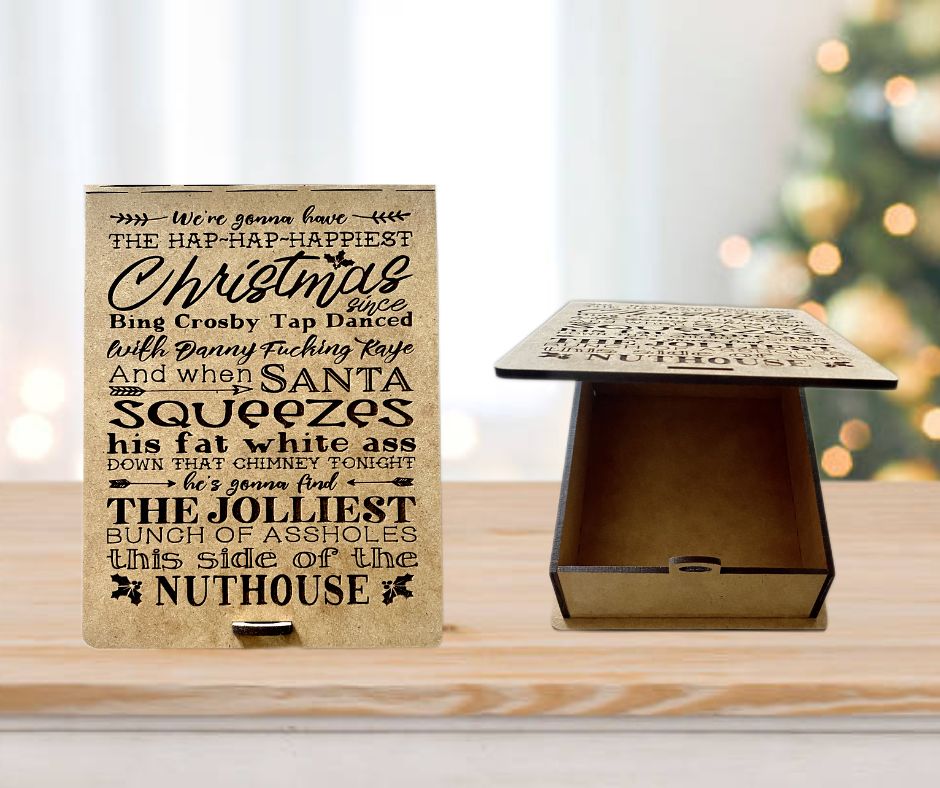 We're gonna have
THE HAP~HAP~HAPPIEST
Christmas
since
Bing Crosby Tap Danced
with Danny Fucking Kaye
And when SANTA
SQUEEZES
his fat white ass
DOWN THAT CHIMNEY TONIGHT
he's gonna find
THE JOLLIEST
BUNCH OF ASSHOLES
this side of the
NUTHOUSE
THE JOLLIEST
NUTHOUSE